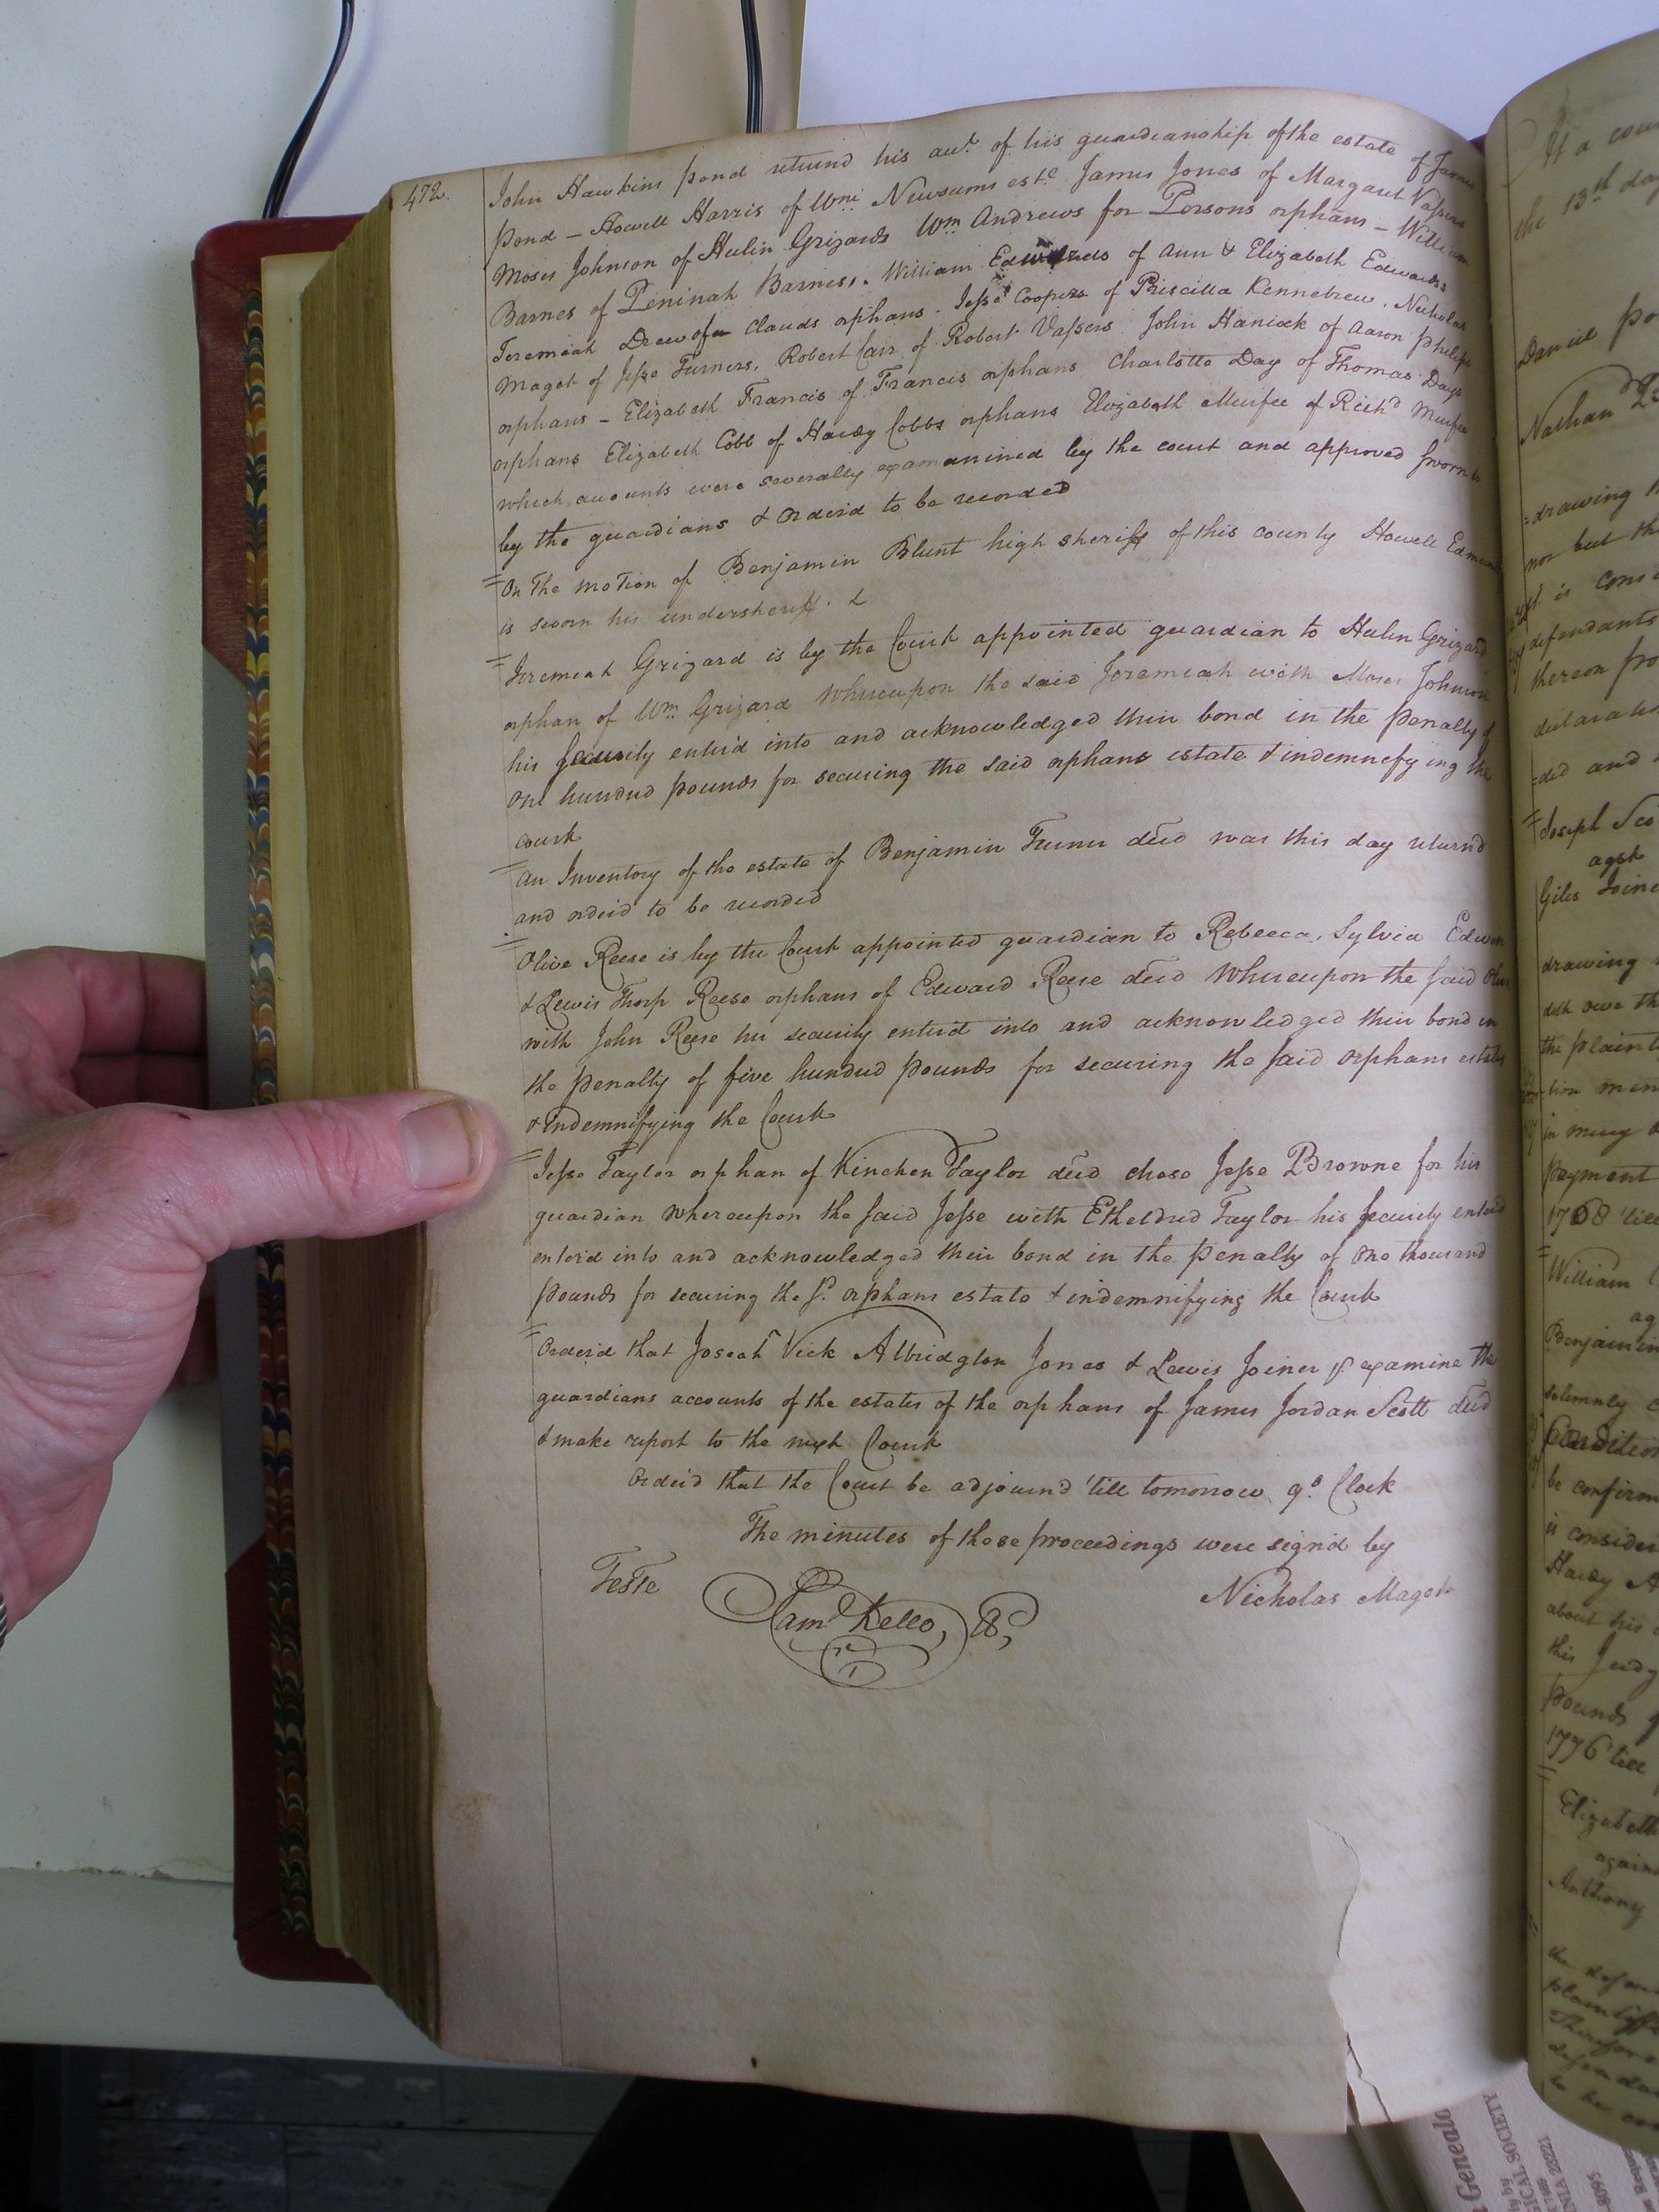 472.
John Hawkins pond returnd his acct. of his guardianship of the estate of James
pond - Howell Harris of Wm: Newsums este. James Jones of Margaret Vassers
Moses Johnson of Hulin Grizards Wm. Andrews for Persons orphans - William
Barnes of Peninah Barness. William Edwards of Ann & Elizabeth Edwards
Jeremiah Drew of Clauds orphans. Jesse Coopers of Priscilla Kennebrew, Nicholas
Maget of Jesse Turners, Robert Carr of Robert Vassers John Hancock of Aaron Philips
orphans - Elizabeth Francis of Francis orphans Charlotte Day of Thomas Days
orphans Elizabeth Cobb of Hardy Cobbs orphans Elizabeth Murfee of Richd Murfee
which accounts were severally examanined by the court and approved sworn to
by the guardians & orderd to be recorded
=On The motion of Benjamin Blunt high sheriff of this county Howell Edmunds
is sworn his undersheriff.
=Jeremiah Grizard is by the Court appointed guardian to Hulin Grizard
orphan of Wm. Grizard Whereupon the said Jeremiah with Moses Johnson
his security enterd into and acknowledged their bond in the penalty of
One hundred pounds for securing the said orphans estate & indemnefying the
court
=An Inventory of the estate of Benjamin Turner decd was this day returnd
and orderd to be recorded
=Olive Reese is by the Court appointed guardian to Rebecca, Sylvia Edwin
& Lewis Thorp Reese orphans of Edward Reese decd Whereupon the said Olive
with John Reese her security enterd into and acknowledged their bond in
the penalty of five hundred pounds for securing the said orphans estates
& Indemnifying the Court
=Jesse Taylor orphan of Kinchen Taylor decd chose Jesse Browne for his
guardian Whereupon the said Jesse with Etheldred Taylor his security enterd
enterd into and acknowledged their bond in the penalty of One thousand
pounds for securing the sd. orphans estate & indemnifying the Court
=Orderd that Josiah Vick Albridgton Jones & Lewis Joiner jr. examine the
guardians accounts of the estates of the orphans of James Jordan Scott decd
& make report to the next Court
Orderd that the Court be adjournd 'till tomorrow 9.o Clock
The minutes of these proceedings were signd by
Teste
Nicholas Maget
Saml Kello,
At a cou
the 13th day
Daniel po
Nathan
=drawing
nor but th
it is cons
defendants
thereon fro
declarati
=ded and
=Joseph Sco
agst
Giles Joine
drawing
doth owe th
the plainti
=tion men
in mcy
payment
1768 'till
William
ag
Benjamin
solemnly
be confirm
is consider
Hardy
about his
this Judg
pounds
1776 till
Elizabeth
again
Anthony
the defen
plaintiff
Therefore
defenda
to be con
Genealo
ICAL SOCIETY
NIA 23221